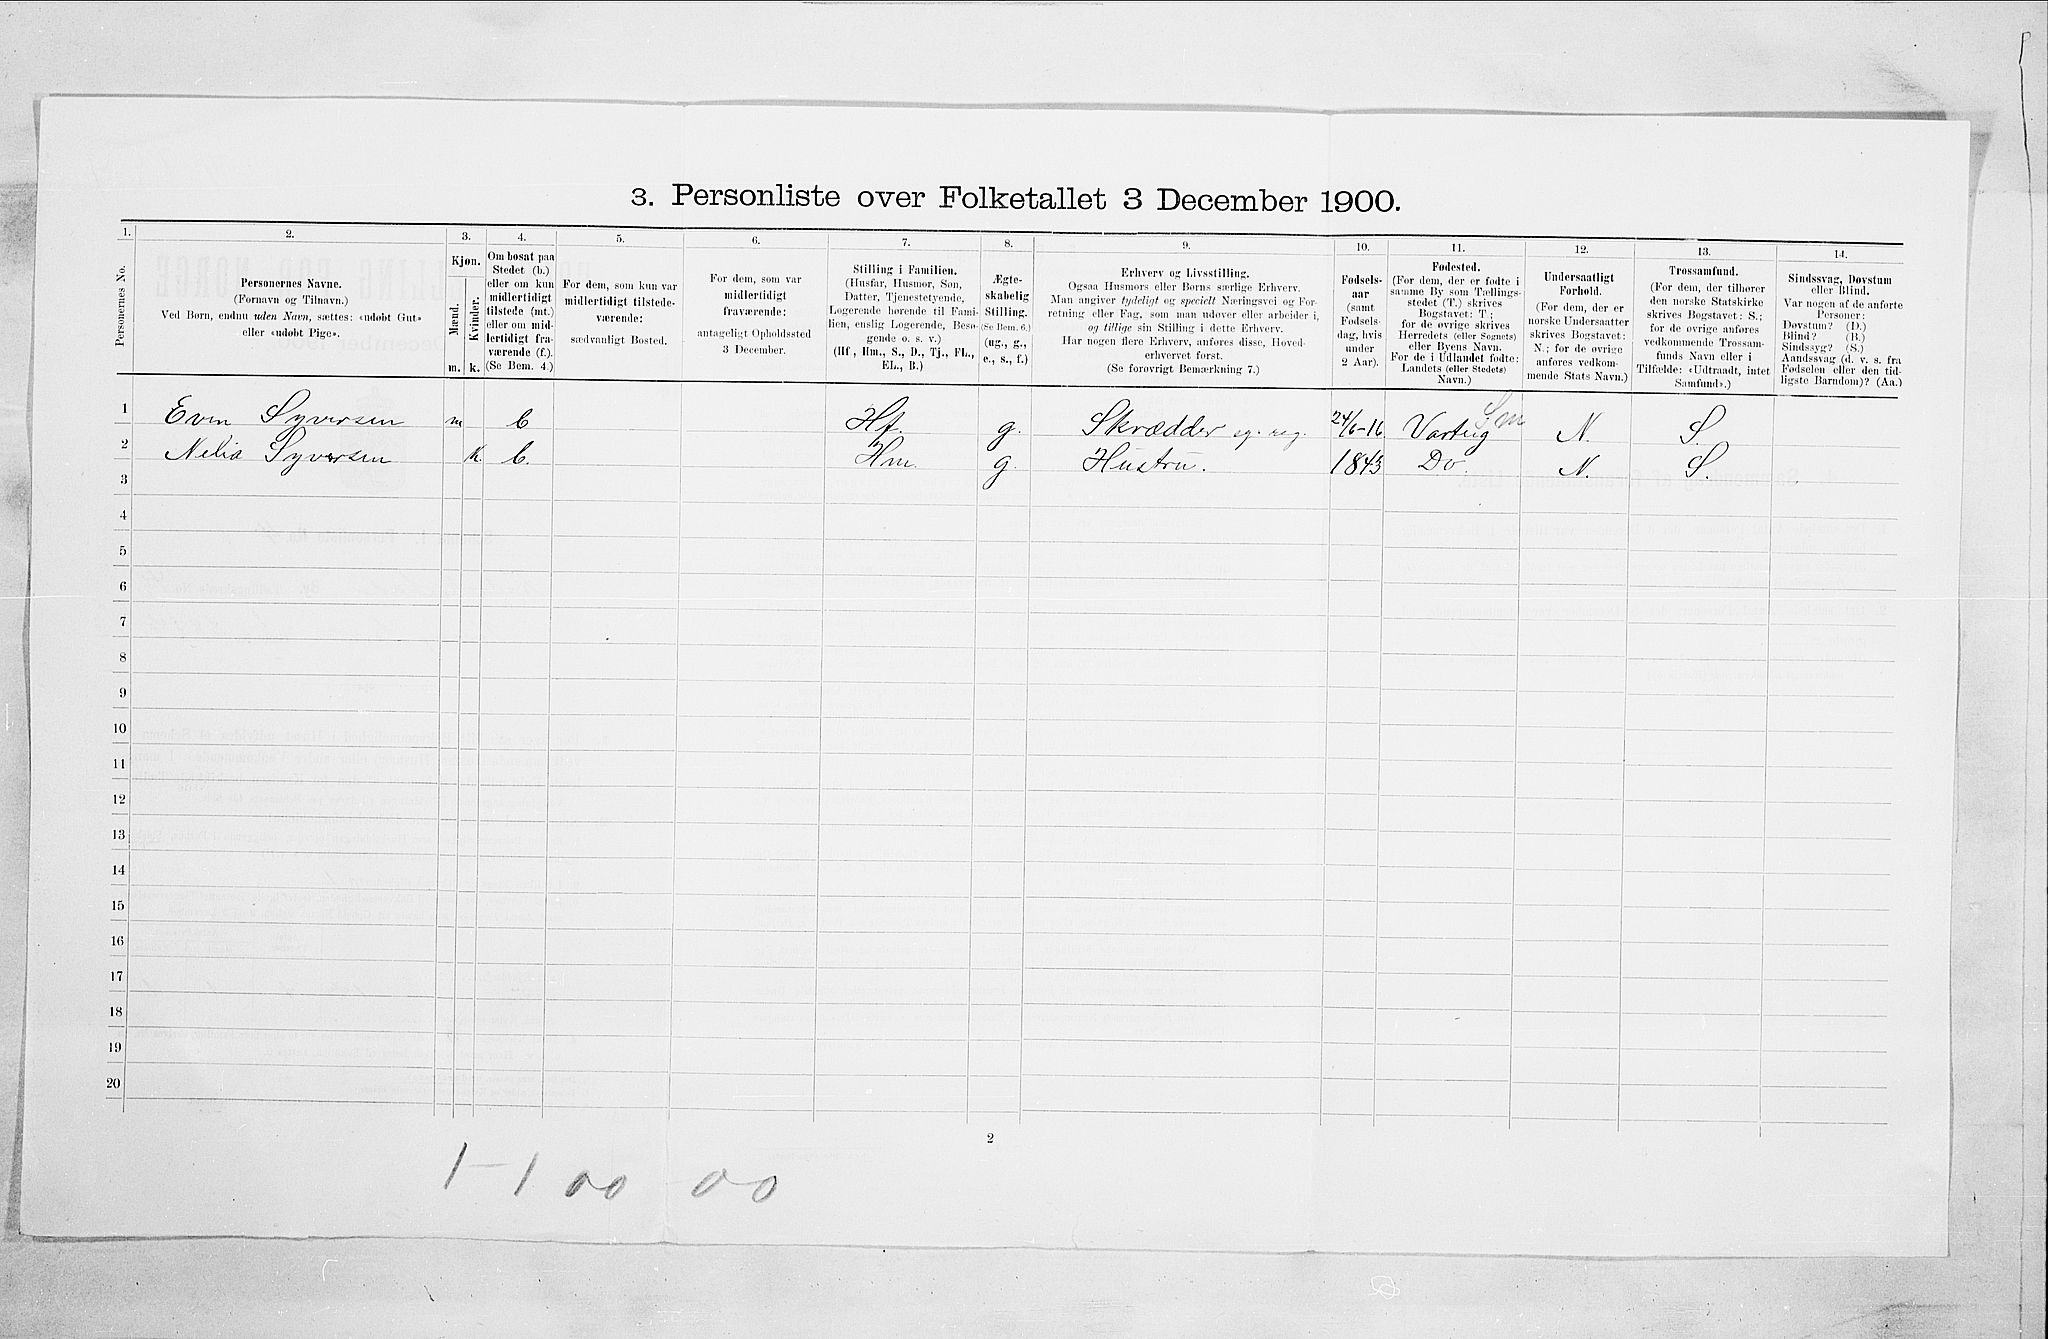 3. Personliste over Folketallet 3 December 1900.
1. 2. 3. 4. 5. 6. 7. 8. 9. 10. 11. 12. 13. 14.
Personernes No.
Personernes Navne.
(Fornavn og Tilnavn.)
Ved Børn, endnu uden Navn, sættes: «udøbt Gut»
eller «udøbt Pige».
Kjøn.
Mænd.
Kvinder.
m. k.
Om bosat paa
Stedet (b.)
eller om kun
midlertidigt
tilstede (mt.)
eller om mid-
lertidigt fra-
værende (f.).
(Se Bem. 4.)
For dem, som kun var
midlertidigt tilstede-
værende:
sædvanligt Bosted.
For dem, som var
midlertidigt
fraværende:
antageligt Opholdssted
3 December.
Stilling i Familien.
(Husfar, Husmor, Søn,
Datter, Tjenestetyende,
Logerende hørende til Fami-
lien, enslig Logerende, Besø-
gende o. s. v.)
(Hf., Hm., S., D., Tj., FL.,
EL., B.)
Ægte-
skabelig
Stilling.
(Se Bem. 6.)
(ug., g.,
e., s., f.)
Erhverv og Livsstilling.
Ogsaa Husmors eller Børns særlige Erhverv.
Man angiver tydeligt og specielt Næringsvei og For-
retning eller Fag, som man udøver eller arbeider i,
og tillige sin Stilling i dette Erhverv.
Har nogen flere Erhverv, anføres disse, Hoved-
erhvervet først.
(Se forøvrigt Bemærkning 7.)
Fødsels-
aar
(samt
Fødsels-
dag, hvis
under
2 Aar).
Fødested.
(For dem, der er fødte i
samme By som Tællings-
stedet (T.) skrives
Bogstavet: T.;
for de øvrige skrives
Herredets (eller Sognets)
eller Byens Navn.
For de i Udlandet fødte:
Landets (eller Stedets)
Navn.)
Undersaatligt
Forhold.
(For dem, der er
norske Undersaatter
skrives Bogstavet:
N.; for de øvrige
anføres vedkom-
mende Stats Navn.)
Trossamfund.
(For dem, der tilhører
den norske Statskirke
skrives Bogstavet: S.;
for de øvrige anføres
vedkommende Trossam-
funds Navn eller i
Tilfælde: «Udtraadt, intet
Samfund».)
Sindssvag, Døvstum
eller Blind.
Var nogen af de anførte
Personer:
Døvstum? (D.)
Blind? (B.)
Sindssyg? (S.)
Aandssvag (d. v. s. fra
Fødselen eller den tid-
ligste Barndom)? (Aa.)
1 Even Syversen m b Hf. g. Skrædder eg. reg. 24/6-16 Varteig Sm N. S.
2 Nelia Syversen k. b. Hm. g. Hustru. 1843 Do. N. S.
3
4
5
6
7
8
9
10
11
12
13
14
15
16
17
18
19
20
2
1-1 00 00